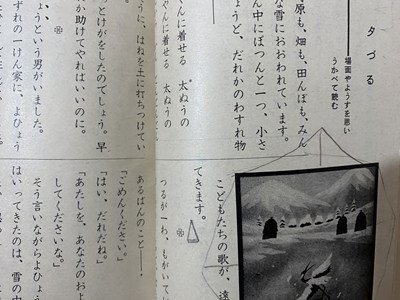 夕づる
場面やようすを思い
うかべて読む
原も、畑も、田んぼも、みん
な雪におおわれています。
ん中にぽつんと一つ、小さ
ょうど、だれかのわすれ物
こどもたちの歌が、遠
てきます。
んに着せる　太ぬうの
やんに着せる　太ぬうの
つるが一わ、もがいてい
うに、はねを土に打ちつけてい
っとけがをしたのでしょう。早
か助けてやればいいのに。
あるばんのこと——。
「ごめんください。」
「はい、だれだね。」
「あたしを、あなたのおよ
してくださいな。」
ょうという男がいました。
ずれの一けん家に、よひょう
そう言いながらよひょう
はいってきたのは、雪の中